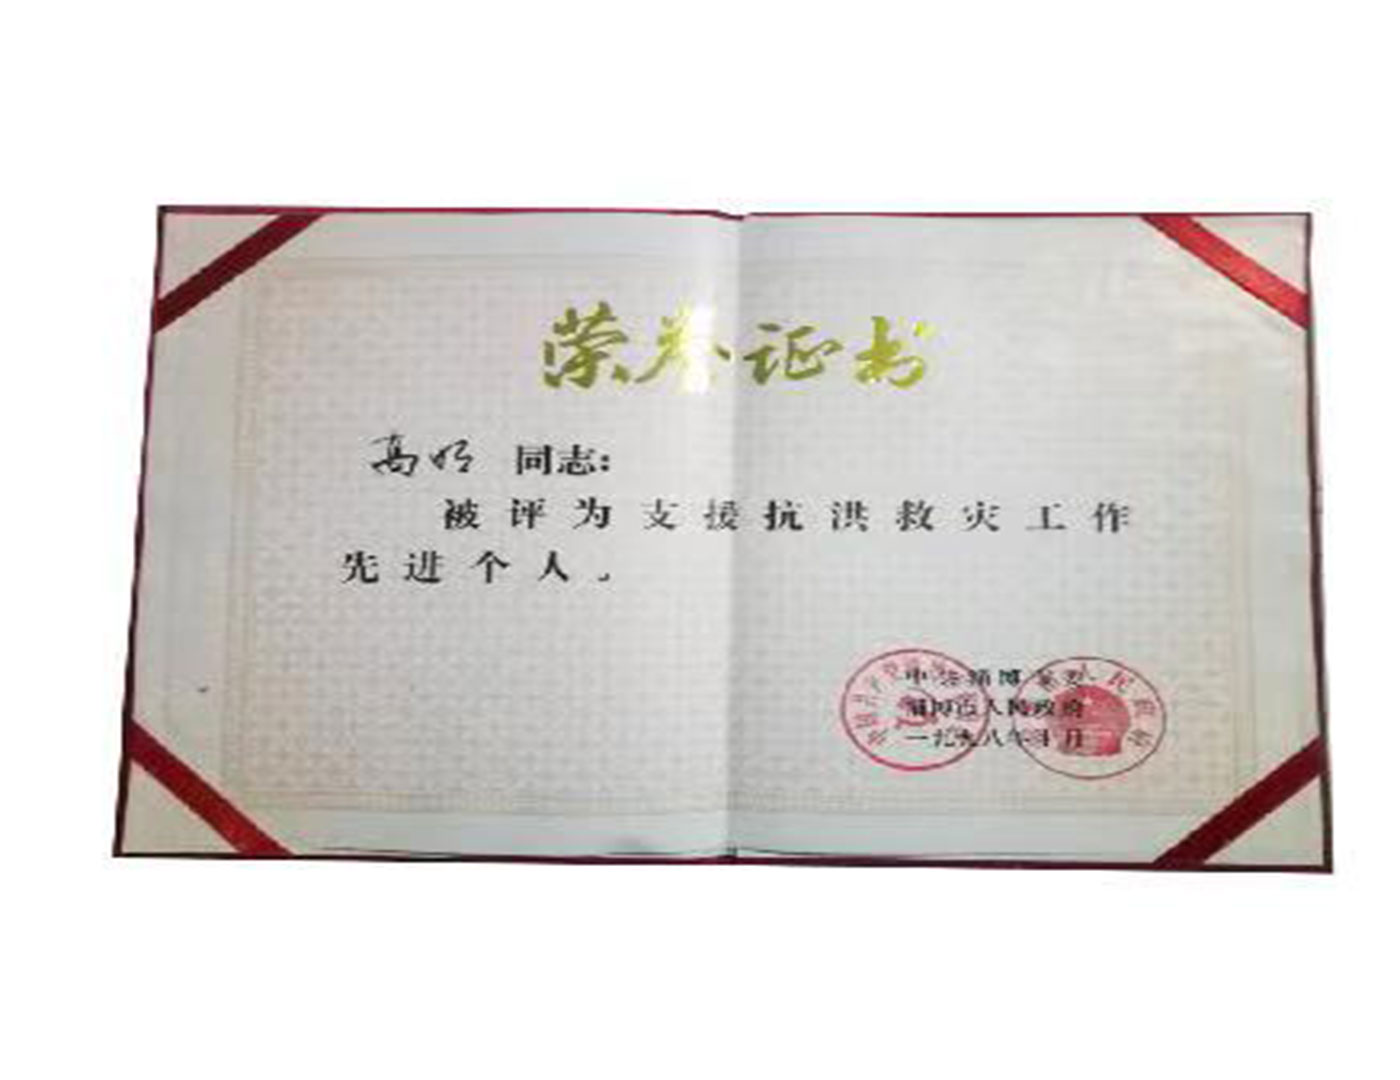 荣誉证书
高明 同志:
被评为支援抗洪救灾工作
先进个人。
中共淄博市委
淄博市人民政府
一九九八年十月